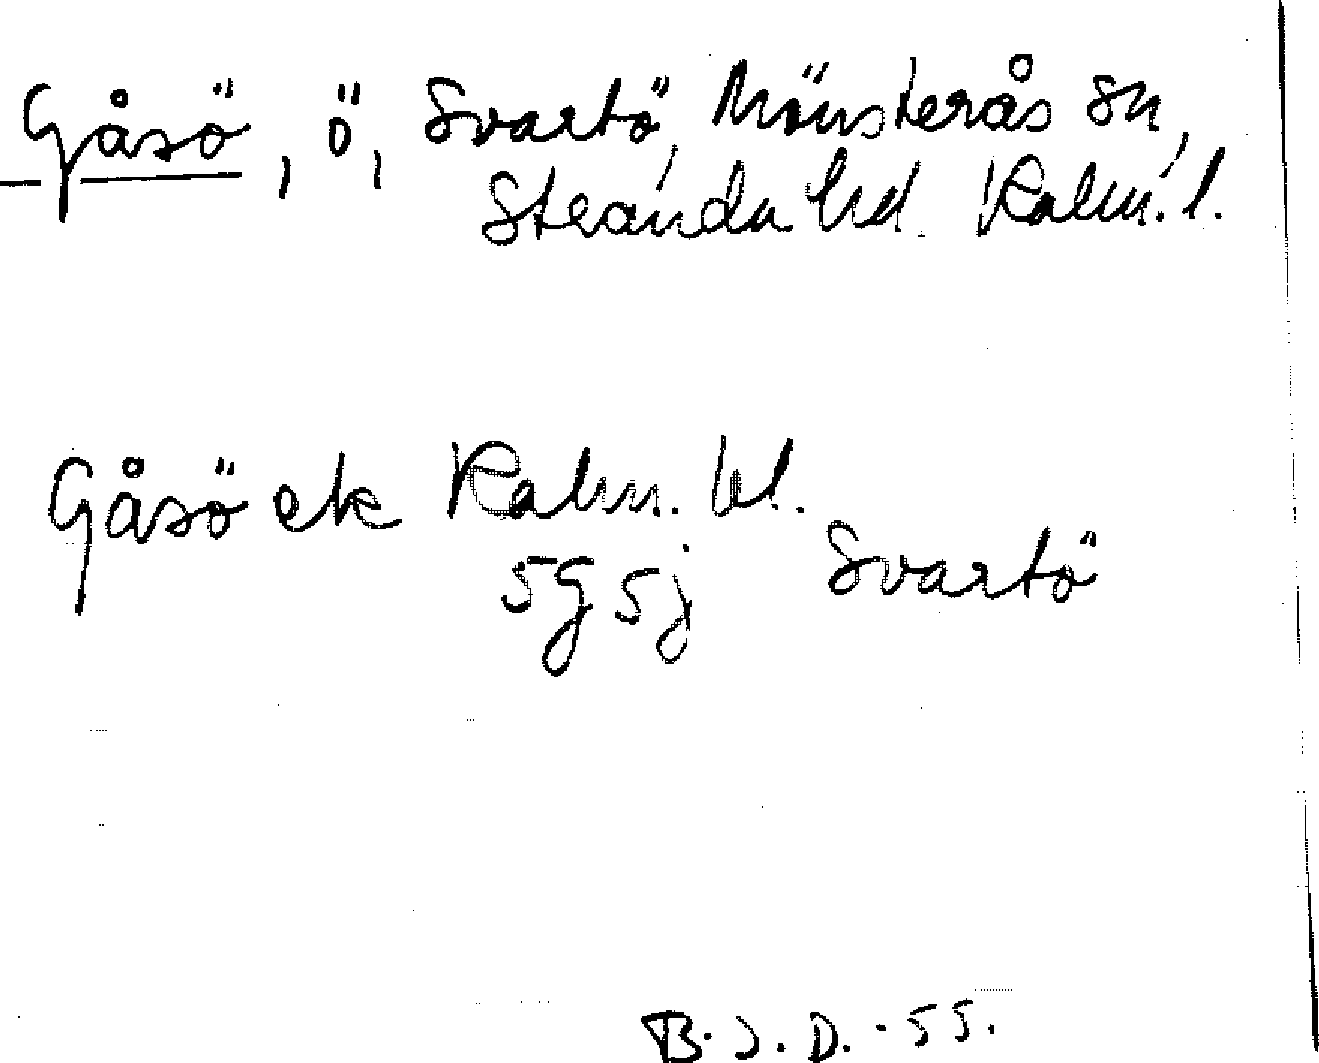 Gåsö, ö, Svartö, Mönsterås sn,
Stranda hd. Kalm. l.
Gåsö ek Kalm. bl.
5g5j Svartö
B.J.D.-55.